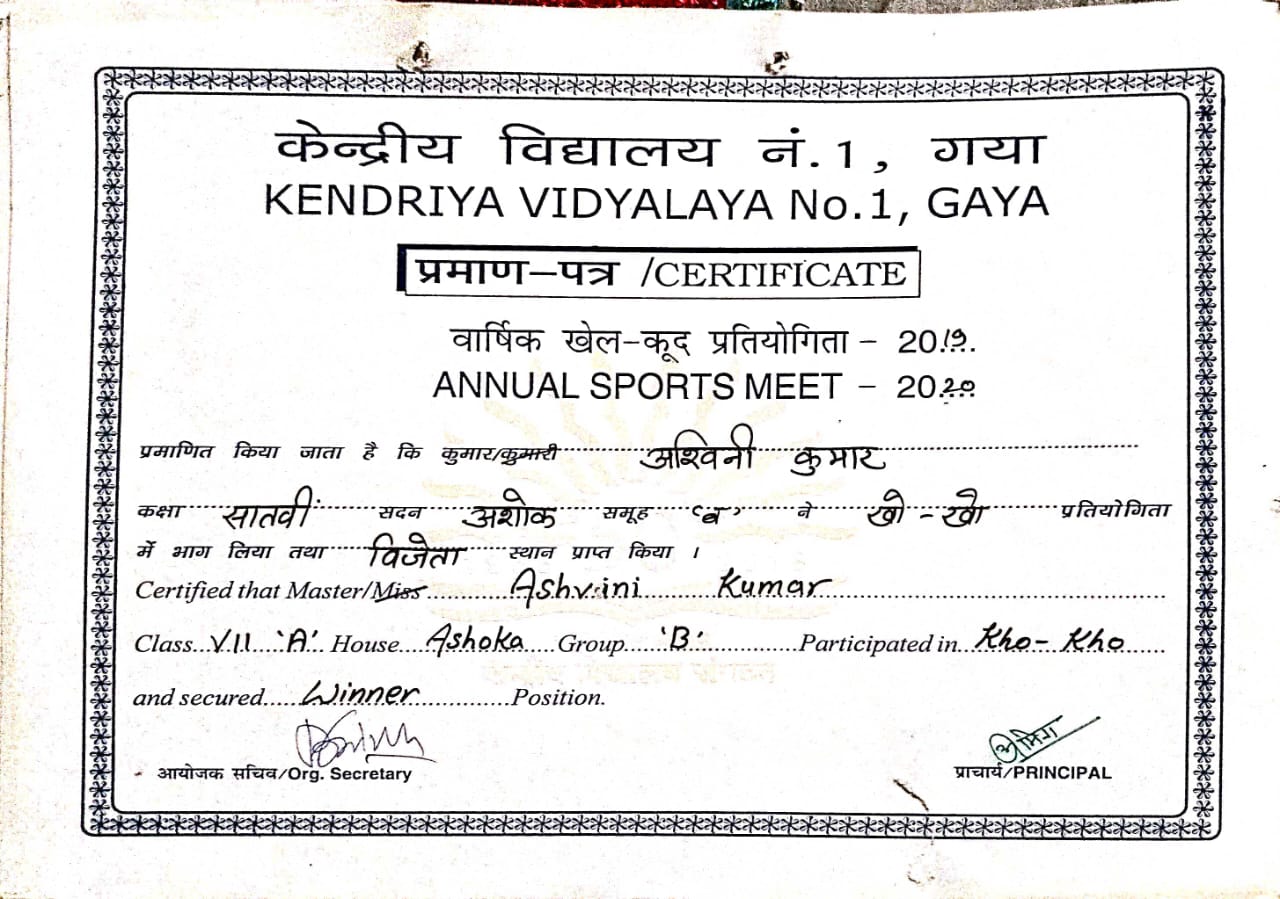 केन्द्रीय विद्यालय नं.1, गया
KENDRIYA VIDYALAYA No.1, GAYA
प्रमाण-पत्र /CERTIFICATE
वार्षिक खेल-कूद प्रतियोगिता - 2019.
ANNUAL SPORTS MEET - 2020
प्रमाणित किया जाता है कि कुमार/कुमारी अश्विनी कुमार
कक्षा सातवीं सदन अशोक समूह 'ब' ने खो-खो प्रतियोगिता
में भाग लिया तथा विजेता स्थान प्राप्त किया ।
Certified that Master/Miss Ashvini Kumar
Class VII 'A' House Ashoka Group 'B' Participated in Kho-Kho
and secured Winner Position.
आयोजक सचिव/Org. Secretary
प्राचार्य/PRINCIPAL